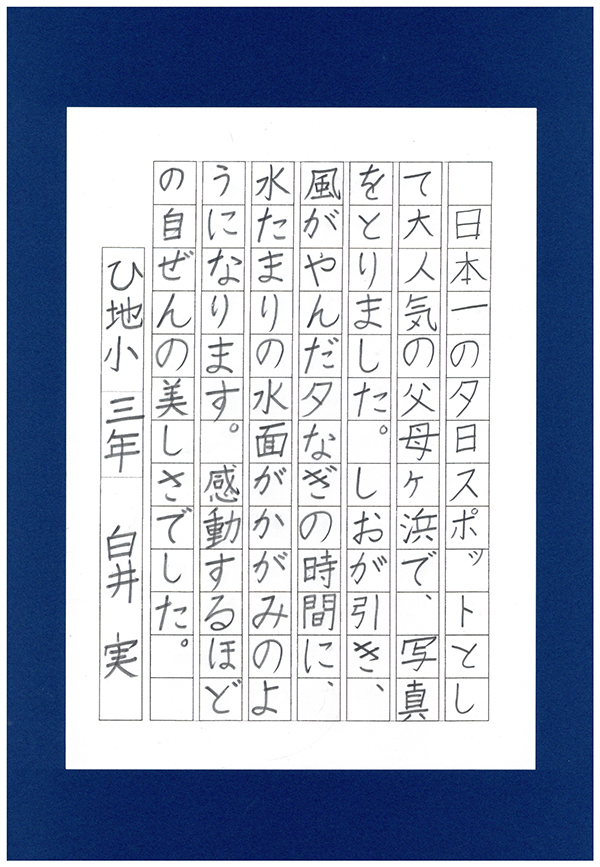 日本一の夕日スポットとし
て大人気の父母ヶ浜で、写真
をとりました。しおが引き、
風がやんだ夕なぎの時間に、
水たまりの水面がかがみのよ
うになります。感動するほど
の自ぜんの美しさでした。
ひ地小 三年 白井 実